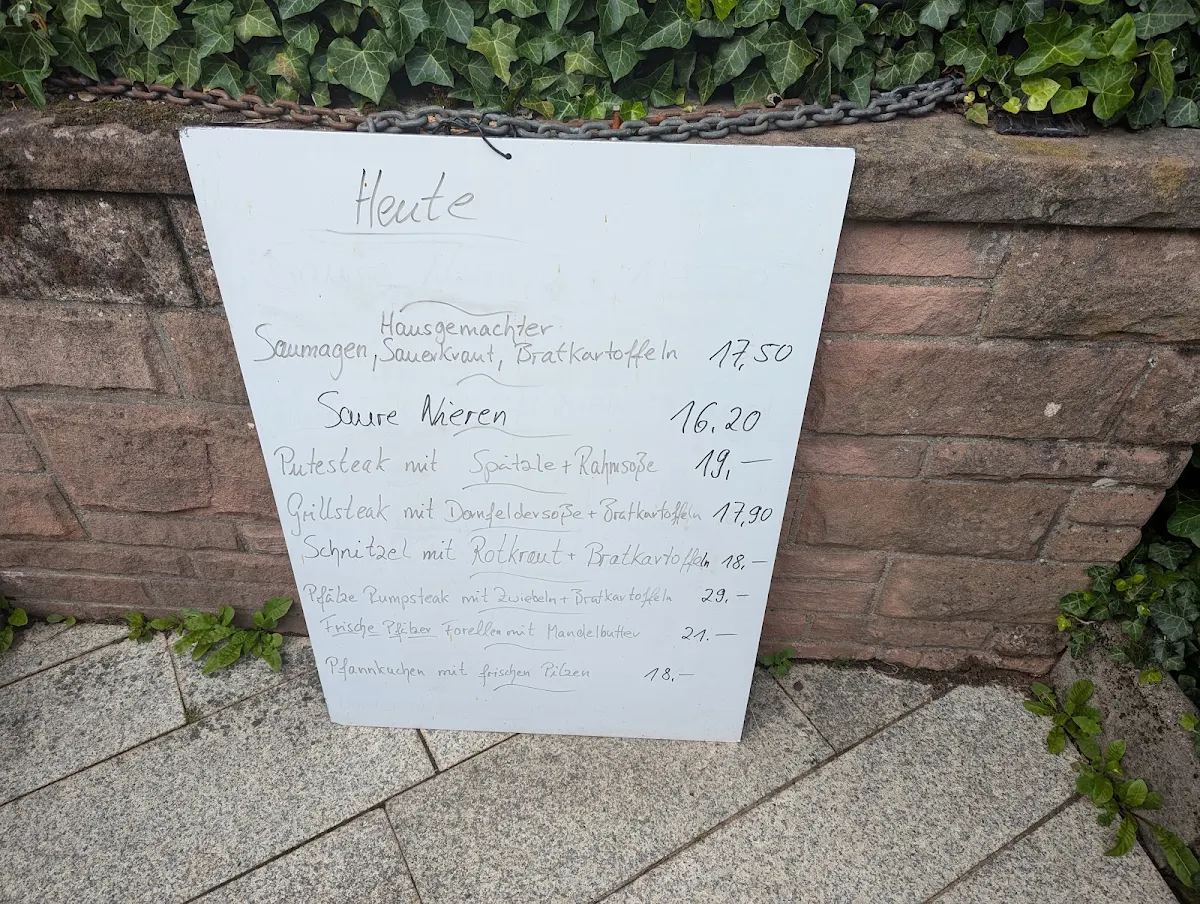 Heute
Hausgemachter
Saumagen, Sauerkraut, Bratkartoffeln 17,50
Saure Nieren 16.20
Putesteak mit Spätzle + Rahmsoße 19,—
Grillsteak mit Dornfeldersoße + Bratkartoffeln 17,90
Schnitzel mit Rotkraut + Bratkartoffeln 18,—
Pfälze Rumpsteak mit Zwiebeln + Bratkartoffeln 29,—
Frische Pfälzer Forellen mit Mandelbutter 21.—
Pfannkuchen mit frischen Pilzen 18,—